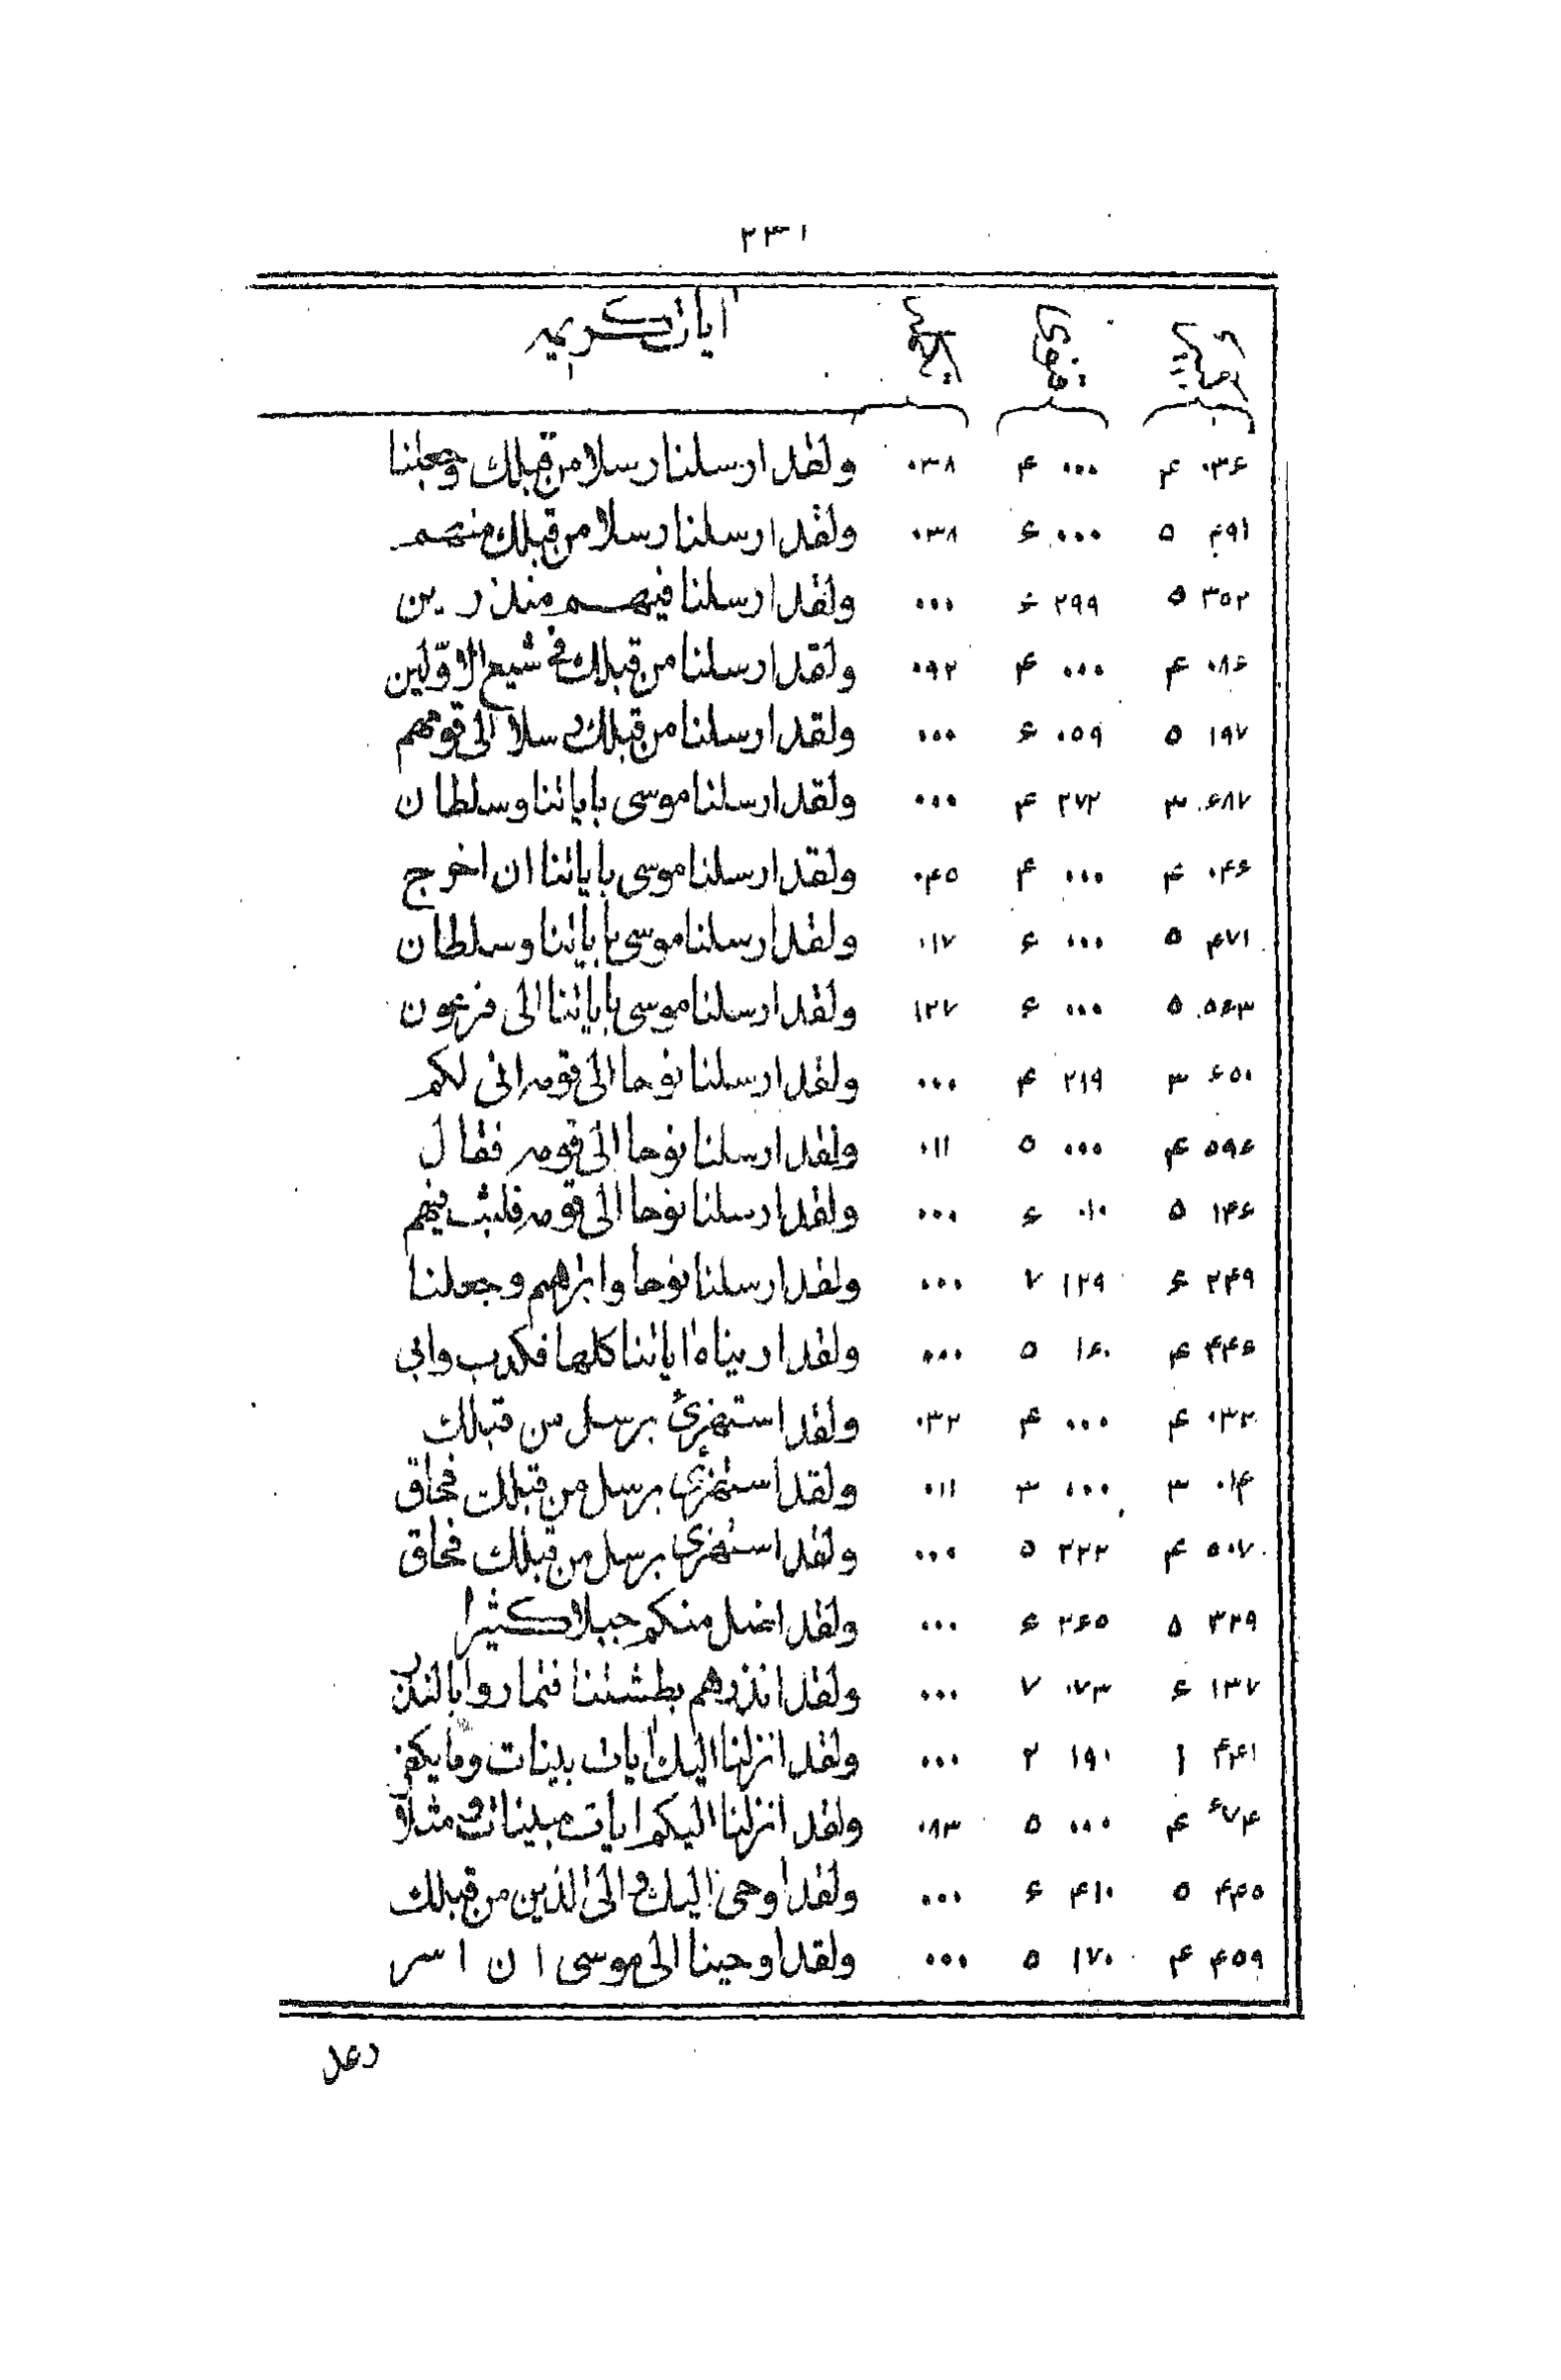 ٢٣١
ايات كريمه
٠٣۶ ۴ ٠٠٠ ۴ ٠٣٨ ولقد ارسلنا رسلا من قبلك وجعلنا
۴٩١ ۵ ٠٠٠ ۶ ٠٣٨ ولقد ارسلنا رسلا من قبلك منهم
٣۵٢ ۵ ٢٩٩ ۶ ٠٠٠ ولقد ارسلنا فيهم منذرين
٠٨۶ ۴ ٠٠٠ ۴ ٠٩٢ ولقد ارسلنا من قبلك فى شيع الاوّلين
١٩٧ ۵ ٠۵٩ ۶ ٠٠٠ ولقد ارسلنا من قبلك رسلا الى قومهم
۶٨٧ ٣ ٢٧٢ ۴ ٠٠٠ ولقد ارسلنا موسى باياتنا وسلطان
٠۴۶ ۴ ٠٠٠ ۴ ٠۴۵ ولقد ارسلنا موسى باياتنا ان اخرج
۴٧١ ۵ ٠٠٠ ۶ ٠١٧ ولقد ارسلنا موسى باياتنا وسلطان
۵۶٣ ۵ ٠٠٠ ۶ ١٢٧ ولقد ارسلنا موسى باياتنا الى فرعون
۶۵٠ ٣ ٢١٩ ۴ ٠٠٠ ولقد ارسلنا نوحا الى قومه انى لكم
۵٩۶ ۴ ٠٠٠ ۵ ٠١١ ولقد ارسلنا نوحا الى قومه فقال
١۴۶ ۵ ٠١٠ ۶ ٠٠٠ ولقد ارسلنا نوحا الى قومه فلبث فيهم
٢۴٩ ۶ ١٢٩ ٧ ٠٠٠ ولقد ارسلنا نوحا وابراهيم وجعلنا
۴۴۶ ۴ ١۶٠ ۵ ٠٠٠ ولقد اريناه اياتنا كلها فكذب وابى
٠٣٢ ۴ ٠٠٠ ۴ ٠٣٢ ولقد استهزئ برسل من قبلك
٠١۴ ٣ ٠٠٠ ٣ ٠١١ ولقد استهزئ برسل من قبلك فحاق
۵٠٧ ۴ ٢٢٢ ۵ ٠٠٠ ولقد استهزئ برسل من قبلك فحاق
٣٢٩ ۵ ٢۶۵ ۶ ٠٠٠ ولقد اضل منكم جبلا كثيرا
١٣٧ ۶ ٠٧٣ ٧ ٠٠٠ ولقد انذرهم بطشتنا فتماروا بالنذر
۴۴١ ١ ١٩٠ ٢ ٠٠٠ ولقد انزلنا اليك ايات بينات وما يكفر
۶٧۴ ۴ ٠٠٠ ۵ ٠٨٣ ولقد انزلنا اليكم ايات مبينات و مثلا
۴۴۵ ۵ ۴١٠ ۶ ٠٠٠ ولقد اوحى اليك و الى الذين من قبلك
۴۵٩ ۴ ١٧٠ ۵ ٠٠٠ ولقد اوحينا الى موسى ان اسر